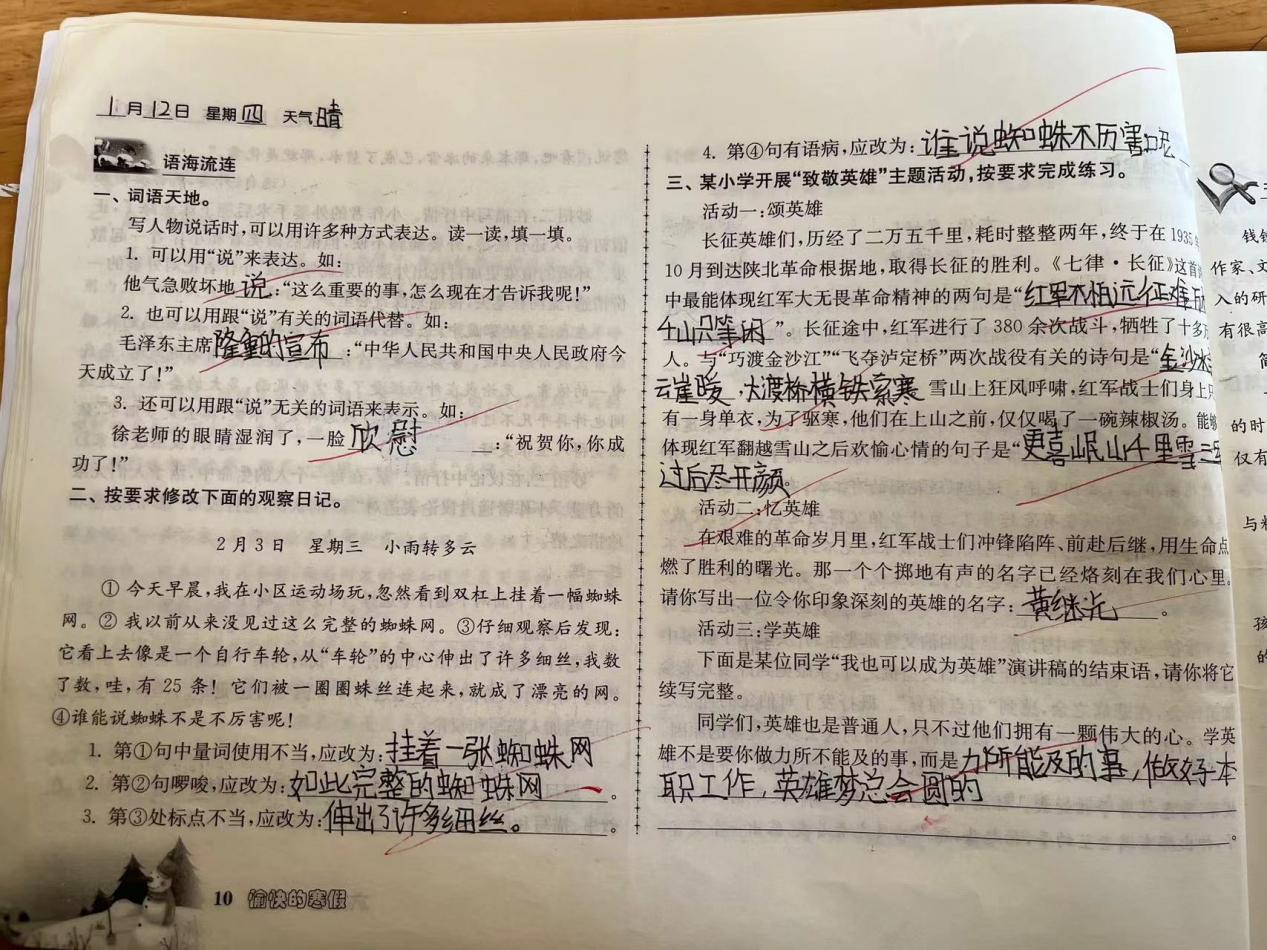 1月12日 星期四 天气晴
语海流连
一、词语天地。
写人物说话时,可以用许多种方式表达。读一读,填一填。
1. 可以用“说”来表达。如:
他气急败坏地说:“这么重要的事,怎么现在才告诉我呢!”
2. 也可以用跟“说”有关的词语代替。如:
毛泽东主席隆重的宣布:“中华人民共和国中央人民政府今
天成立了!”
3. 还可以用跟“说”无关的词语来表示。如:
徐老师的眼睛湿润了,一脸欣慰:“祝贺你,你成
功了!”
二、按要求修改下面的观察日记。
2月3日 星期三 小雨转多云
① 今天早晨,我在小区运动场玩,忽然看到双杠上挂着一幅蜘蛛
网。② 我以前从来没见过这么完整的蜘蛛网。③仔细观察后发现:
它看上去像是一个自行车轮,从“车轮”的中心伸出了许多细丝,我数
了数,哇,有 25 条! 它们被一圈圈蛛丝连起来,就成了漂亮的网。
④谁能说蜘蛛不是不厉害呢!
1. 第①句中量词使用不当,应改为:挂着一张蜘蛛网
2. 第②句啰唆,应改为:如此完整的蜘蛛网。
3. 第③处标点不当,应改为:伸出了许多细丝。。
10 愉快的寒假
4. 第④句有语病,应改为:谁说蜘蛛不厉害呢
三、某小学开展“致敬英雄”主题活动,按要求完成练习。
活动一:颂英雄
长征英雄们,历经了二万五千里,耗时整整两年,终于在 1935
10 月到达陕北革命根据地,取得长征的胜利。《七律·长征》这首
中最能体现红军大无畏革命精神的两句是“红军不怕远征难
千山只等闲”。长征途中,红军进行了 380 余次战斗,牺牲了十多
人。与“巧渡金沙江”“飞夺泸定桥”两次战役有关的诗句是“金沙水
云崖暖,大渡桥横铁索寒 雪山上狂风呼啸,红军战士们身上只
有一身单衣,为了驱寒,他们在上山之前,仅仅喝了一碗辣椒汤。能够
体现红军翻越雪山之后欢愉心情的句子是“更喜岷山千里雪三军
过后尽开颜
活动二:忆英雄
在艰难的革命岁月里,红军战士们冲锋陷阵、前赴后继,用生命点
燃了胜利的曙光。那一个个掷地有声的名字已经烙刻在我们心里。
请你写出一位令你印象深刻的英雄的名字:黄继光。
活动三:学英雄
下面是某位同学“我也可以成为英雄”演讲稿的结束语,请你将它
续写完整。
同学们,英雄也是普通人,只不过他们拥有一颗伟大的心。学英
雄不是要你做力所不能及的事,而是力所能及的事,做好本
职工作,英雄梦总会圆的
。
钱
作家、文
入的研
有很高
的时
仅有
与
孩
的